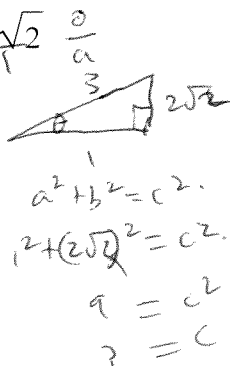 √2/1 o/a
3
2√2
θ
1
a² + b² = c².
1² + (2√2)² = c².
9 = c²
3 = c